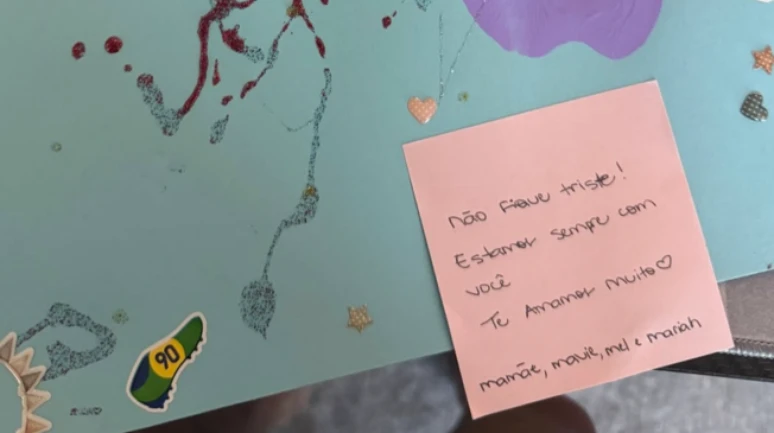 não fique triste!
Estamos sempre com
você
Te Amamos muito♡
mamãe, mavie, mel e mariah
90